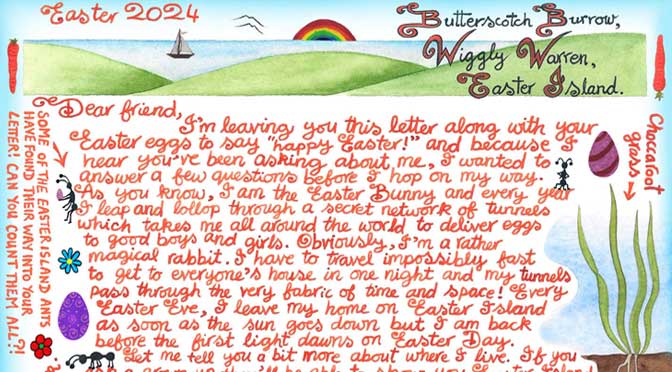 Easter 2024
Butterscotch Burrow,
Wiggly Warren,
Easter Island.
Dear friend,
I'm leaving you this letter along with your
Easter eggs to say "happy Easter!" and because I
hear you've been asking about me, I wanted to
answer a few questions before I hop on my way.
As you know, I am the Easter Bunny and every year
I leap and lollop through a secret network of tunnels
which takes me all around the world to deliver eggs
to good boys and girls. Obviously, I'm a rather
magical rabbit. I have to travel impossibly fast
to get to everyone's house in one night and my tunnels
pass through the very fabric of time and space! Every
Easter Eve, I leave my home on Easter Island
as soon as the sun goes down but I am back
before the first light dawns on Easter Day.
Let me tell you a bit more about where I live. If you
SOME OF THE EASTER ISLAND ANTS
HAVE FOUND THEIR WAY INTO YOUR
LETTER! CAN YOU COUNT THEM ALL?!
Choccatoot
grass